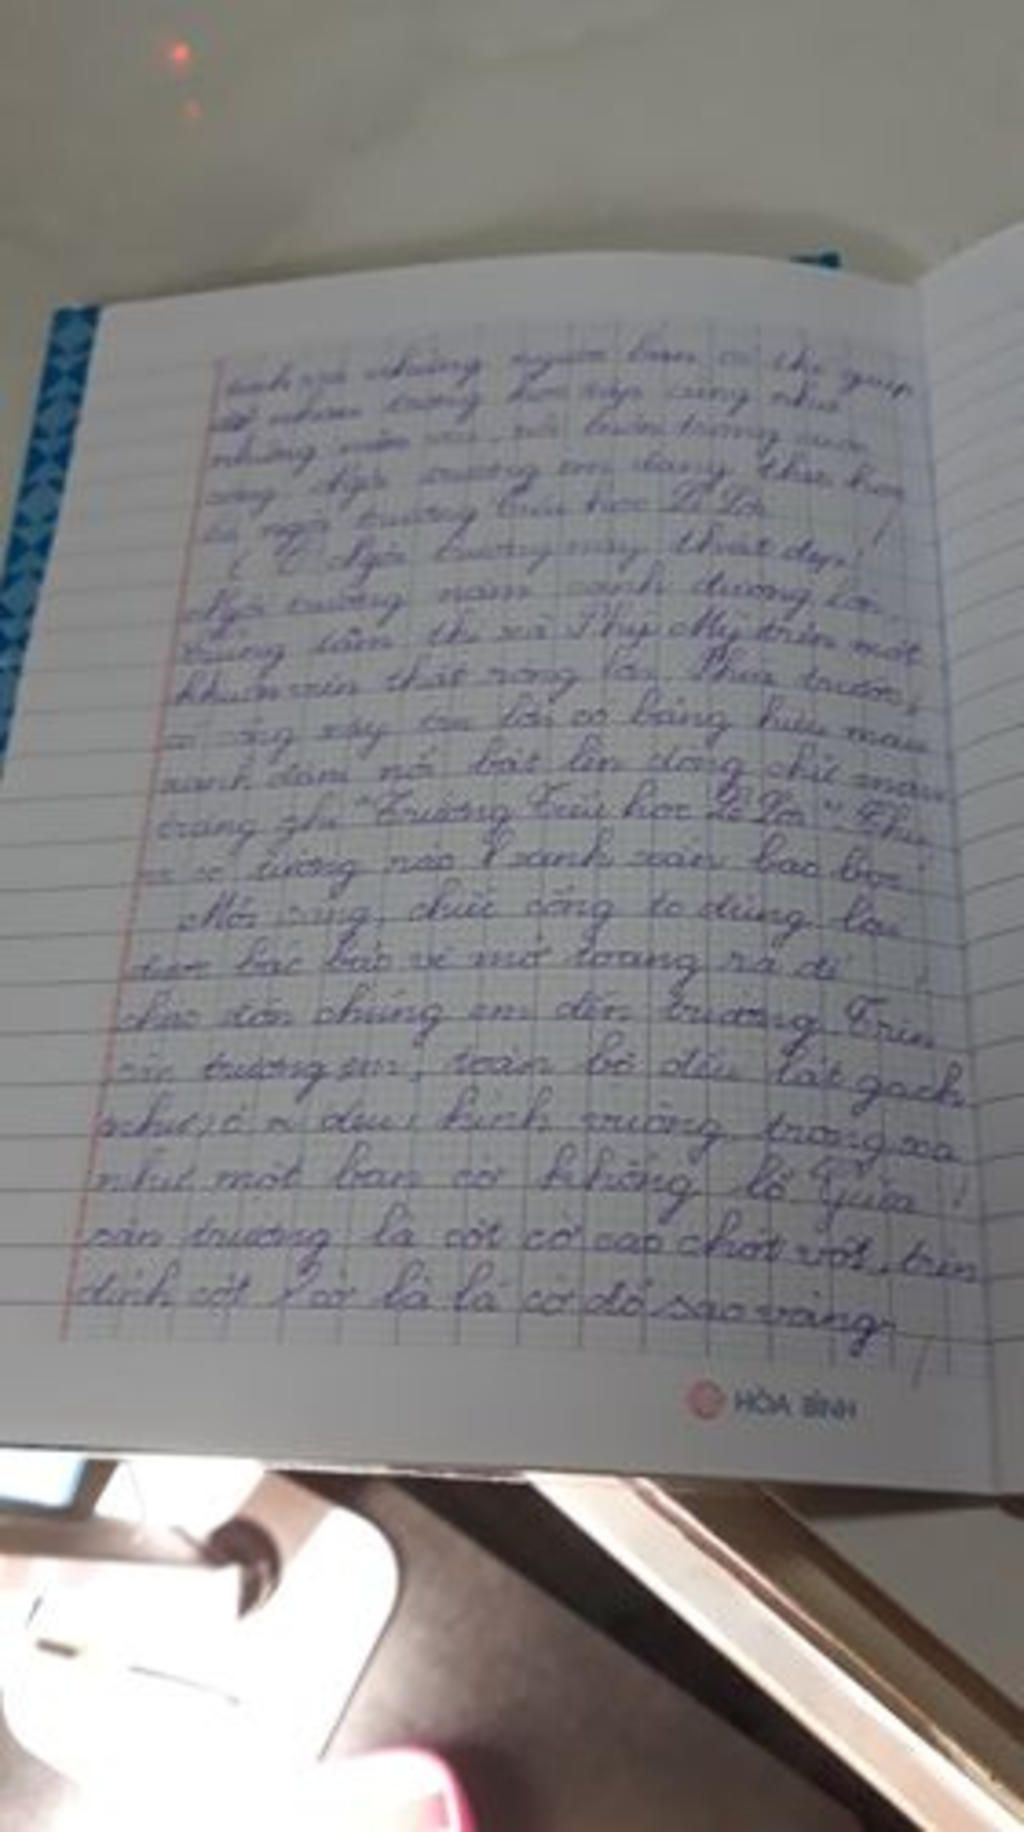 những người bạn có thể giúp
đỡ nhau trong học tập cũng như
những niềm vui, nỗi buồn trong cuộc
sống. Ngôi trường em đang theo học
là ngôi trường Tiểu học Lê Lợi
Ngôi trường này thật đẹp!
Ngôi trường nằm cạnh đường lớn,
trung tâm thị xã Phú Mỹ trên một
khuôn viên thật rộng lớn. Phía trước,
lối có bảng hiệu màu
xanh đậm nổi bật lên dòng chữ màu
trắng ghi "Trường Tiểu học Lê Lợi".
tường rào xanh bao bọc
Mỗi sáng, chiếc cổng to đùng lại
được bác bảo vệ mở toang ra để
chào đón chúng em đến trường. Trên
sân trường em, toàn bộ đều lát gạch
hình vuông, trông xa
như một bàn cờ khổng lồ. Giữa
sân trường là cột cờ cao chót vót, trên
đỉnh cột cờ là lá cờ đỏ sao vàng.
HÒA BÌNH